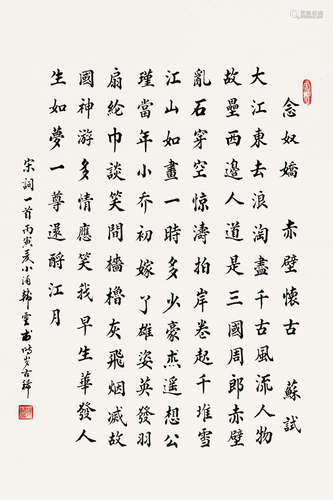 念奴嬌 赤壁懷古 蘇試
大江東去浪淘盡千古風流人物
故壘西邊人道是三國周郎赤壁
亂石穿空惊濤拍岸卷起千堆雪
江山如畫一時多少豪杰遥想公
瑾當年小乔初嫁了雄姿英發羽
扇綸巾談笑間檣櫓灰飛烟滅故
國神游多情應笑我早生華發人
生如夢一尊還酹江月
宋詞一首丙寅夏